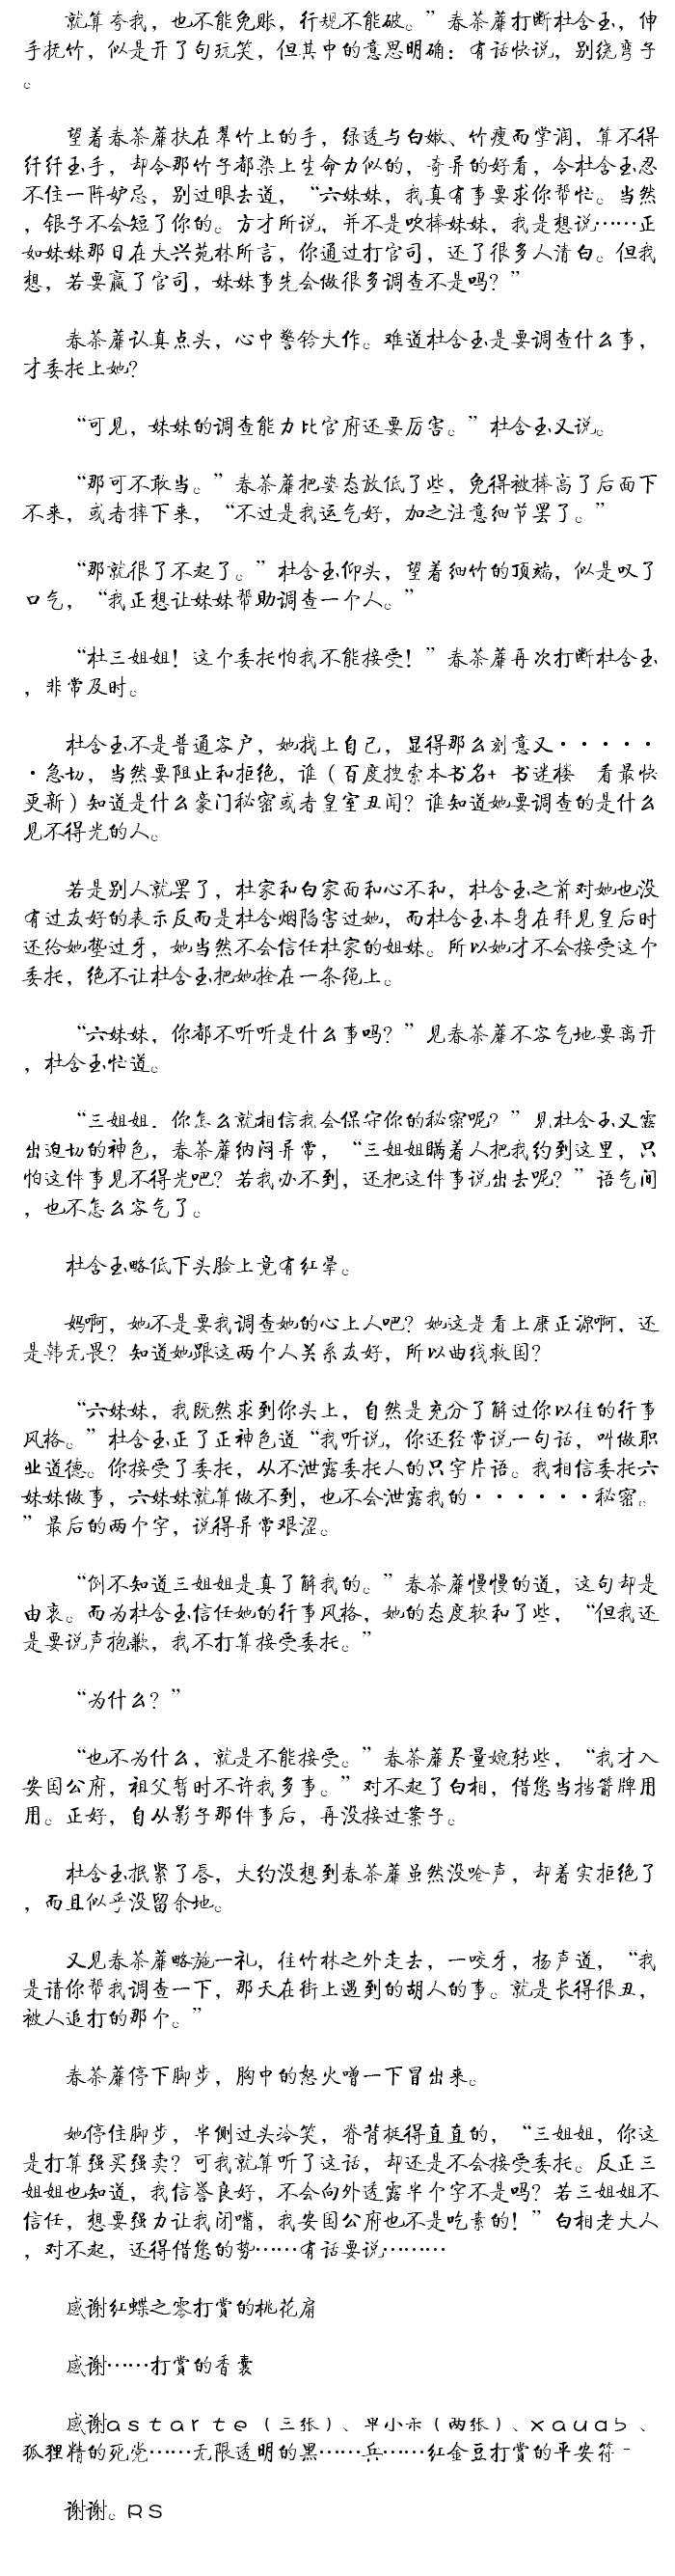 就算夸我，也不能免账，行规不能破。”春荼蘼打断杜含玉，伸
手抚竹，似是开了句玩笑，但其中的意思明确：有话快说，别绕弯子
。
望着春荼蘼扶在翠竹上的手，绿透与白嫩、竹瘦而掌润，算不得
纤纤玉手，却令那竹子都染上生命力似的，奇异的好看，令杜含玉忍
不住一阵妒忌，别过眼去道，“六妹妹，我真有事要求你帮忙。当然
，银子不会短了你的。方才所说，并不是吹捧妹妹，我是想说……正
如妹妹那日在大兴苑林所言，你通过打官司，还了很多人清白。但我
想，若要赢了官司，妹妹事先会做很多调查不是吗？”
春荼蘼认真点头，心中警铃大作。难道杜含玉是要调查什么事，
才委托上她？
“可见，妹妹的调查能力比官府还要厉害。”杜含玉又说。
“那可不敢当。”春荼蘼把姿态放低了些，免得被捧高了后面下
不来，或者摔下来，“不过是我运气好，加之注意细节罢了。”
“那就很了不起了。”杜含玉仰头，望着细竹的顶端，似是叹了
口气，“我正想让妹妹帮助调查一个人。”
“杜三姐姐！这个委托怕我不能接受！”春荼蘼再次打断杜含玉
，非常及时。
杜含玉不是普通客户，她找上自己，显得那么刻意又·····
·急切，当然要阻止和拒绝，谁（百度搜索本书名+ 书迷楼　看最快
更新）知道是什么豪门秘密或者皇室丑闻？谁知道她要调查的是什么
见不得光的人。
若是别人就罢了，杜家和白家面和心不和，杜含玉之前对她也没
有过友好的表示反而是杜含烟陷害过她，而杜含玉本身在拜见皇后时
还给她垫过牙，她当然不会信任杜家的姐妹。所以她才不会接受这个
委托，绝不让杜含玉把她拴在一条绳上。
“六妹妹，你都不听听是什么事吗？”见春荼蘼不客气地要离开
，杜含玉忙道。
“三姐姐，你怎么就相信我会保守你的秘密呢？”见杜含玉又露
出迫切的神色，春荼蘼纳闷异常，“三姐姐瞒着人把我约到这里，只
怕这件事见不得光吧？若我办不到，还把这件事说出去呢？”语气间
，也不怎么客气了。
杜含玉略低下头脸上竟有红晕。
妈啊，她不是要我调查她的心上人吧？她这是看上康正源啊，还
是韩无畏？知道她跟这两个人关系友好，所以曲线救国？
“六妹妹，我既然求到你头上，自然是充分了解过你以往的行事
风格。”杜含玉正了正神色道“我听说，你还经常说一句话，叫做职
业道德。你接受了委托，从不泄露委托人的只字片语。我相信委托六
妹妹做事，六妹妹就算做不到，也不会泄露我的······秘密。
”最后的两个字，说得异常艰涩。
“倒不知道三姐姐是真了解我的。”春荼蘼慢慢的道，这句却是
由衷。而为杜含玉信任她的行事风格，她的态度软和了些，“但我还
是要说声抱歉，我不打算接受委托。”
“为什么？”
“也不为什么，就是不能接受。”春荼蘼尽量婉转些，“我才入
安国公府，祖父暂时不许我多事。”对不起了白相，借您当挡箭牌用
用。正好，自从影子那件事后，再没接过案子。
杜含玉抿紧了唇，大约没想到春荼蘼虽然没呛声，却着实拒绝了
，而且似乎没留余地。
又见春荼蘼略施一礼，往竹林之外走去，一咬牙，扬声道，“我
是请你帮我调查一下，那天在街上遇到的胡人的事。就是长得很丑，
被人追打的那个。”
春荼蘼停下脚步，胸中的怒火噌一下冒出来。
她停住脚步，半侧过头冷笑，脊背挺得直直的，“三姐姐，你这
是打算强买强卖？可我就算听了这话，却还是不会接受委托。反正三
姐姐也知道，我信誉良好，不会向外透露半个字不是吗？若三姐姐不
信任，想要强力让我闭嘴，我安国公府也不是吃素的！”白相老大人
，对不起，还得借您的势……有话要说………
感谢红蝶之零打赏的桃花扇
感谢……打赏的香囊
感谢ａｓｔａｒｔｅ（三张）、早小禾（两张）、ｘａｕａｂ、
狐狸精的死党……无限透明的黑……兵……红金豆打赏的平安符-
谢谢。RS